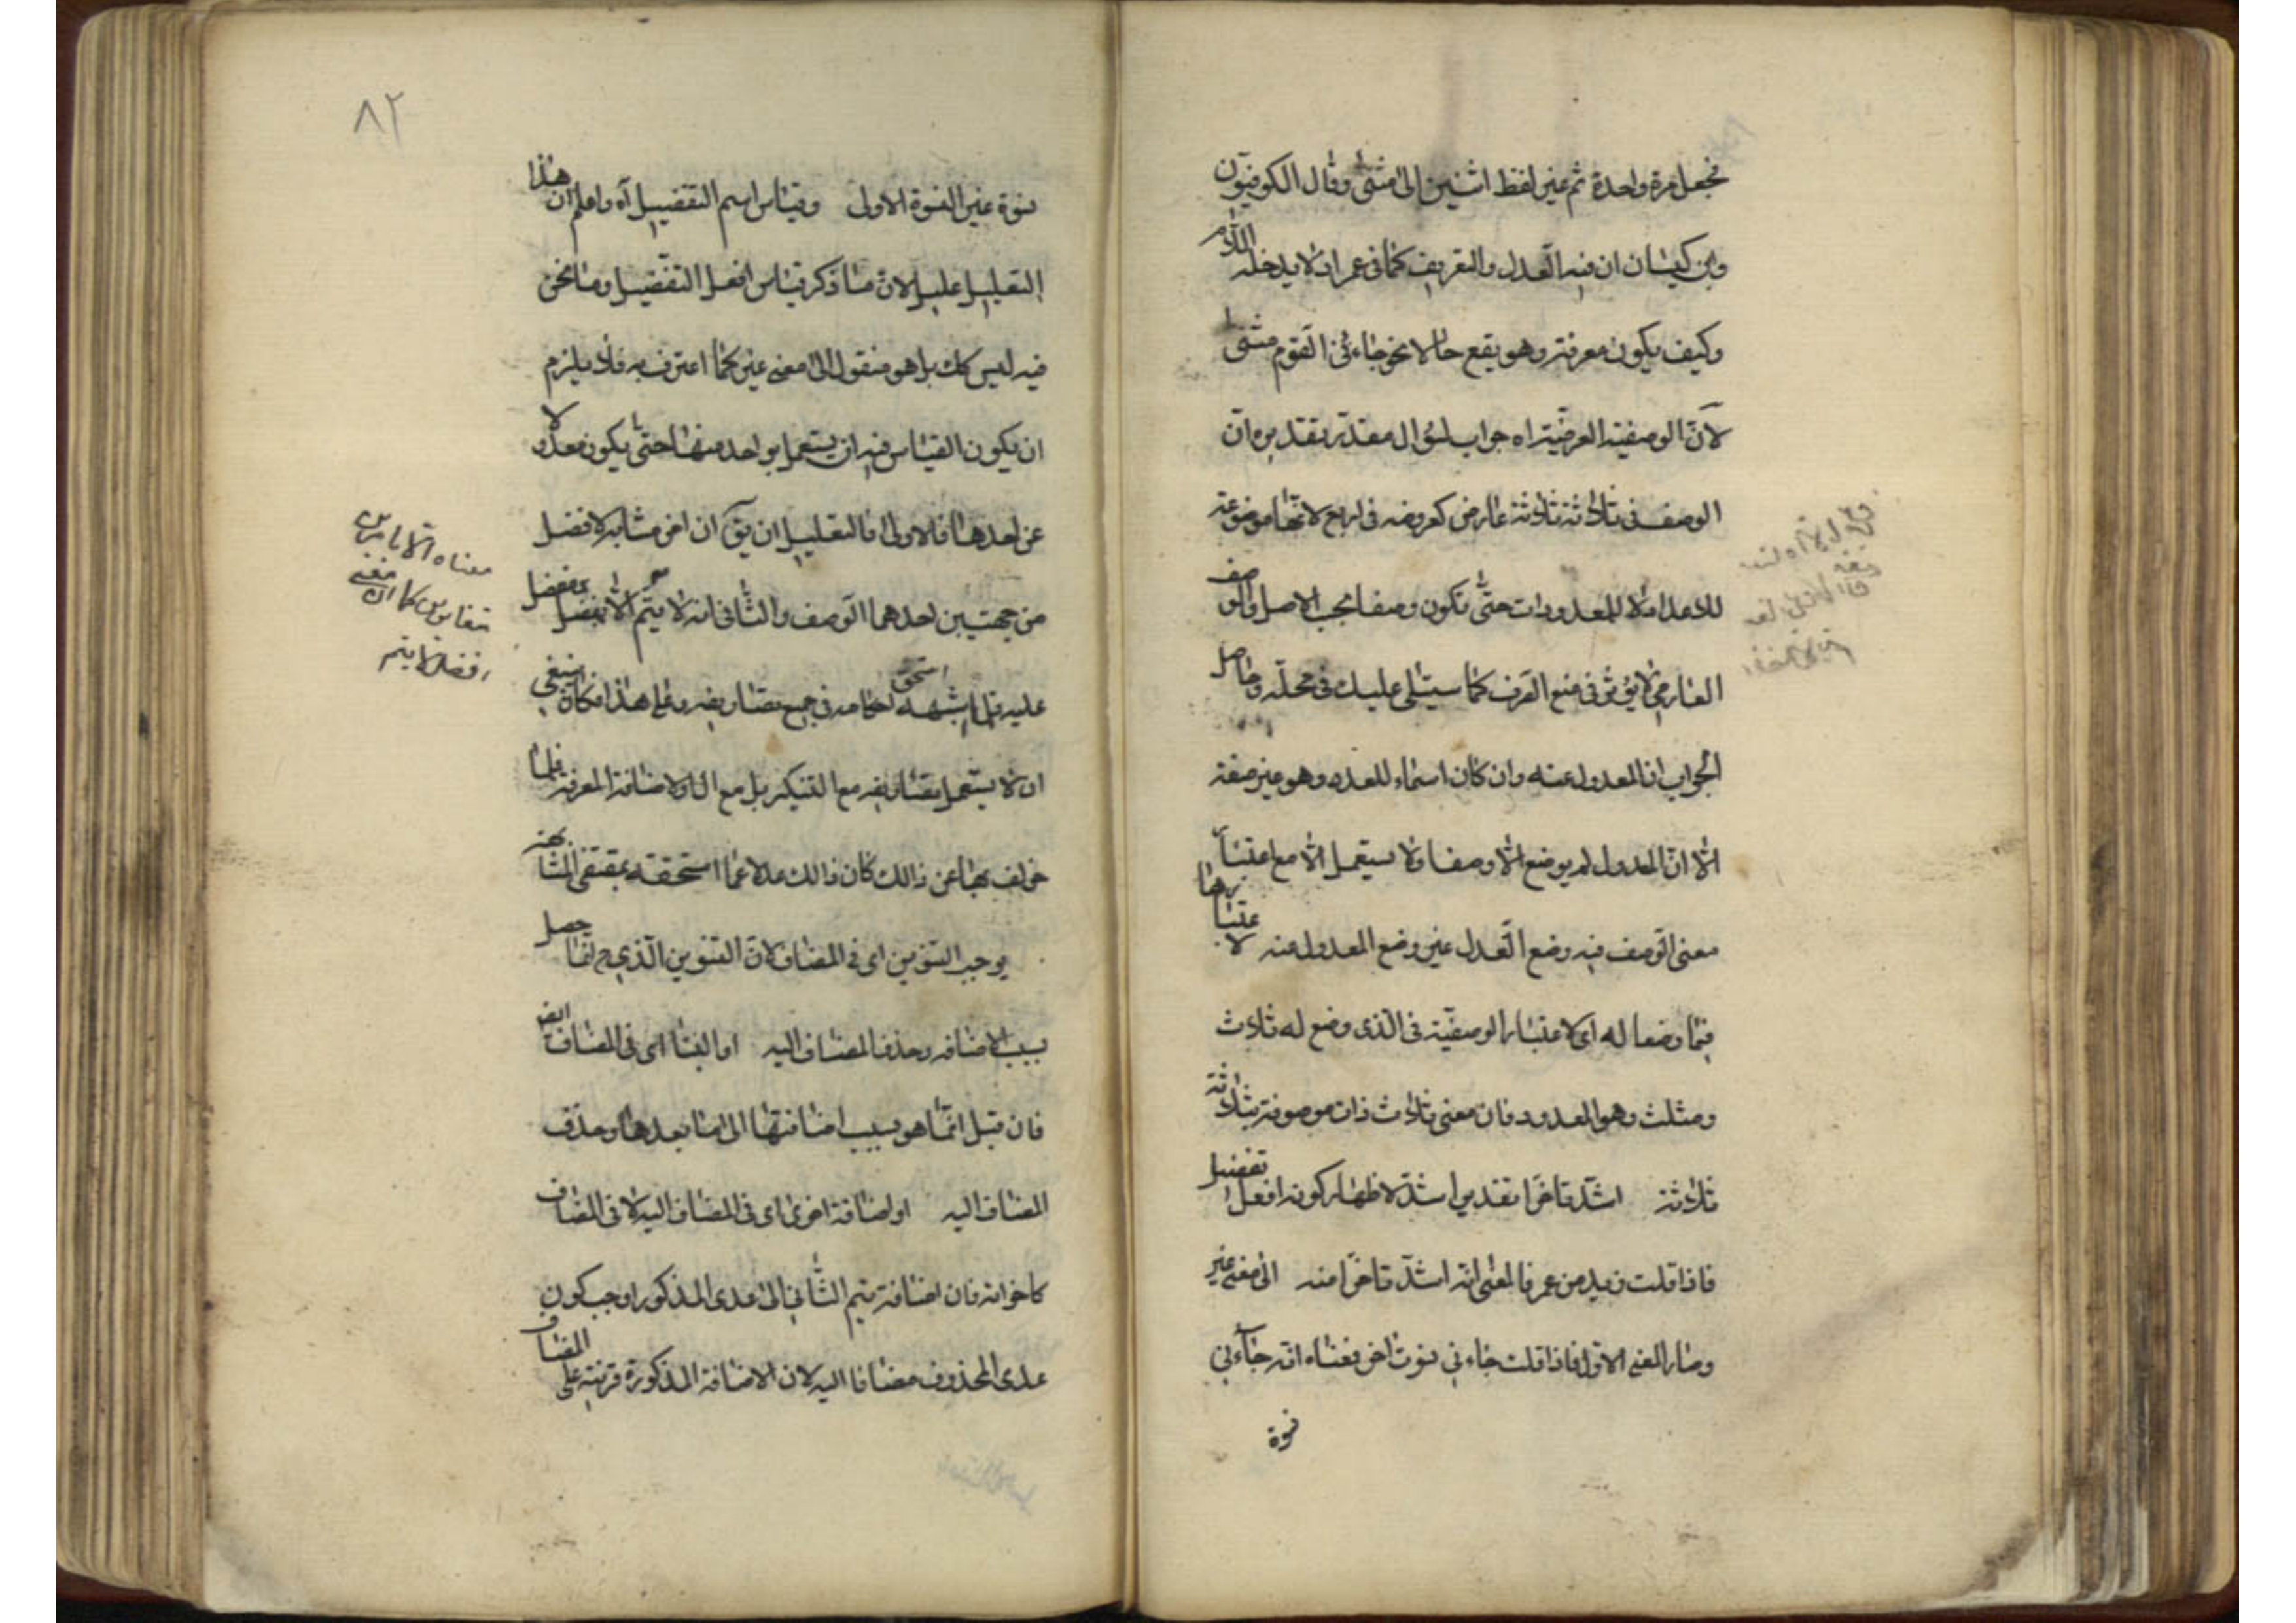 نجعل مرة واحدة ثم غير لفظ اثنين الى مثنى وقال الكوفيون
وابن كيسان ان فيه العدل والتعريف كما في عمر اذ لا يدخله اللام
وكيف يكون معرفة وهو يقع حالا نحو جاءني القوم مثنى
لان الوصفية العرضية اه جواب لسؤال مقدر تقديره ان
الوصف في ثلاثة ثلاثة عارض كعروضه في اربع لانها موضوعة
للاعداد لا للمعدودات حتى تكون وصفا بحسب الاصل والوصف
العارضي لا يؤثر في منع الصرف كما سيتلى عليك في محله وحاصل
الجواب ان المعدول عنه وان كان اسماء للعدد وهو غير صفة
الا ان المعدول لم يوضع الا وصفا ولا يستعمل الا مع اعتبار
معنى الوصف فيه وضع العدل غير وضع المعدول عنه لاعتبارها
فيما وضعا له اى لاعتبار الوصفية في الذى وضع له ثلاث
ومثلث وهو المعدود فان معنى ثلاث ذات موصوفة بثلاثة
ثلاثة اشد تاخرا تقدير اشد لاظهار كونه افعل تفضيل
فاذا قلت زيد من عمر فالمعنى انه اشد تاخرا منه الى معنى غير
وصار المعنى الاول فاذا قلت جاءني نسوة اخر فمعناه انه جاءني
نسوة
٨٢
نسوة غير النسوة الاولى وقياس اسم التفضيل آه واعلم ان هذا
التعليل عليل لان ما ذكر قياس افعل التفضيل وما نحن
فيه ليس كك بل هو منقول الى معنى غير كما اعترف به فلا يلزم
ان يكون القياس فيه ان يستعمل بواحد منها حتى يكون معدولا
عن احدها فالاولى فالتعليل ان يق ان اخر مشابه لافضل
من جهتين احدهما الوصف والثاني انه لا يتم الا بمفضل
عليه قبل اشبهه استحق احكامه في جميع تصاريفه وعلى هذا فكان ينبغي
ان لا يستعمل تصاريفه مع التنكير بل مع ال او الاضافة المعرفة فلما
خولف بها عن ذالك كان ذالك عدلا عما استحقته بمقتضى المشابهة
يوجب التنوين اى في المضاف لان التنوين الذي ح انما حصل
بسبب الاضافه وحذف المضاف اليه او البناء اى في المضاف ايض
فان قبل انما هو بسبب اضافتها الى ما بعدها وحذف
المضاف اليه او اضافة اخرى اى في المضاف اليه لا في المضاف
كاخواته فان اضافة تيم الثاني الى عدى المذكور اوجب كون
عدى المحذوف مضافا اليه لان الاضافة المذكورة قرينة على المضاف
معناه
كما ان معنى
افضل لا يتم